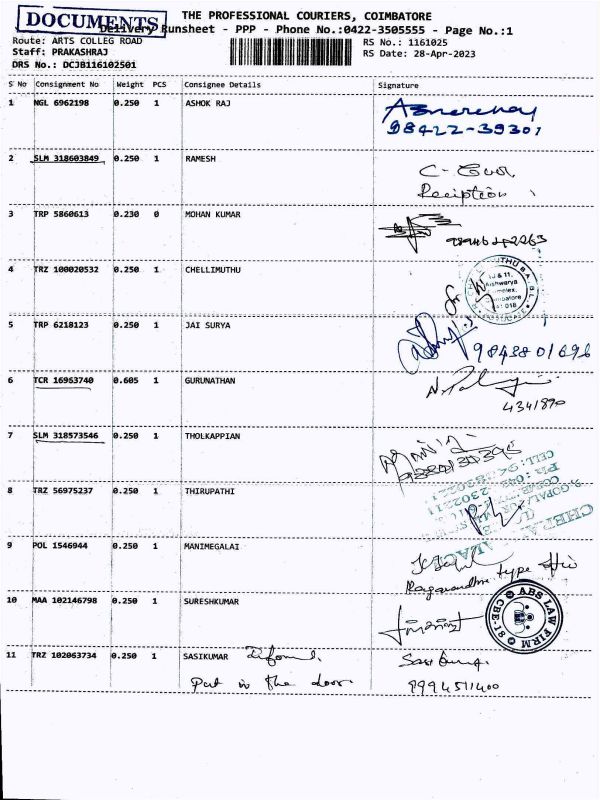 DOCUMENTS
THE PROFESSIONAL COURIERS, COIMBATORE
Delivery Runsheet - PPP - Phone No.:0422-3505555 - Page No.:1
Route: ARTS COLLEG ROAD RS No.: 1161025
Staff: PRAKASHRAJ RS Date: 28-Apr-2023
DRS No.: DCJB116102501
S No Consignment No Weight PCS Consignee Details Signature
1 NGL 6962198 0.250 1 ASHOK RAJ
98422-39301
2 SLM 318603849 0.250 1 RAMESH
Reciption
3 TRP 5860613 0.230 0 MOHAN KUMAR
4 TRZ 100020532 0.250 1 CHELLIMUTHU
5 TRP 6218123 0.250 1 JAI SURYA
9843801696
6 TCR 16963740 0.605 1 GURUNATHAN
4341890
7 SLM 318573546 0.250 1 THOLKAPPIAN
8 TRZ 56975237 0.250 1 THIRUPATHI
9 POL 1546944 0.250 1 MANIMEGALAI
type
10 MAA 102146798 0.250 1 SURESHKUMAR
ABS LAW FIRM
CBE-18
11 TRZ 102063734 0.250 1 SASIKUMAR
Put in the door
9994511400